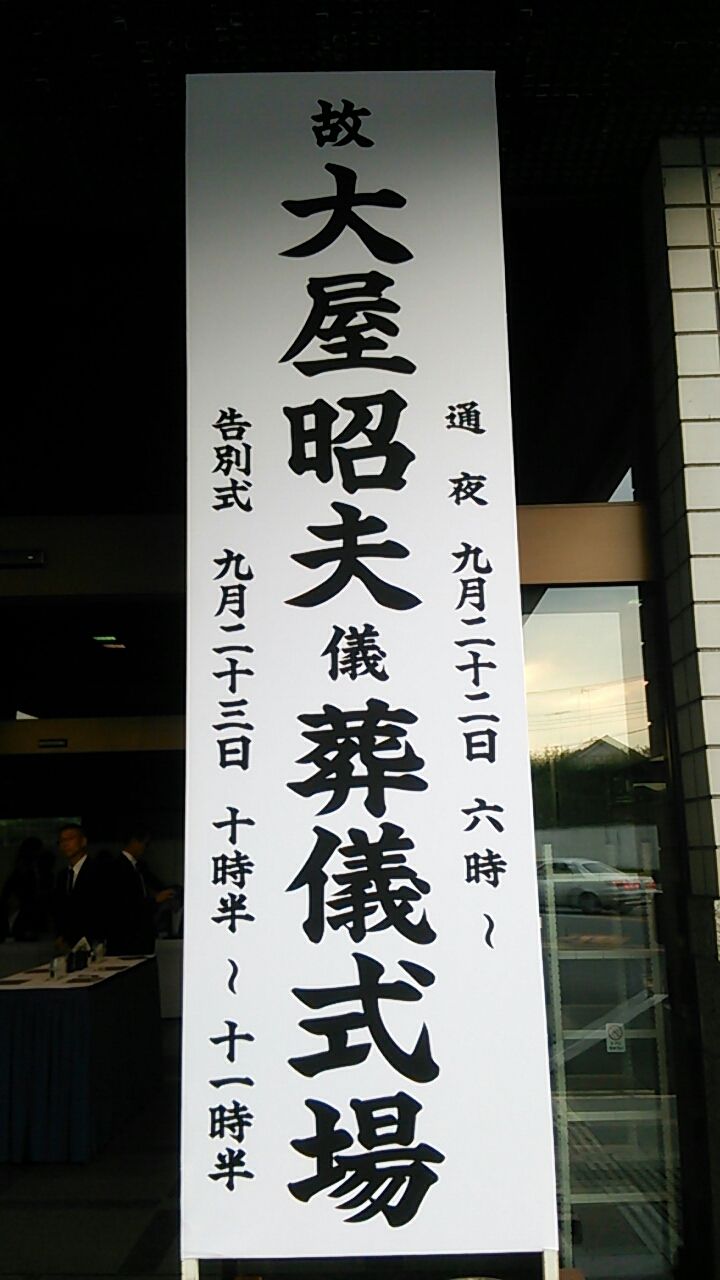 通夜 九月二十二日 六時～
故 大屋昭夫 儀 葬儀式場
告別式 九月二十三日 十時半～十一時半